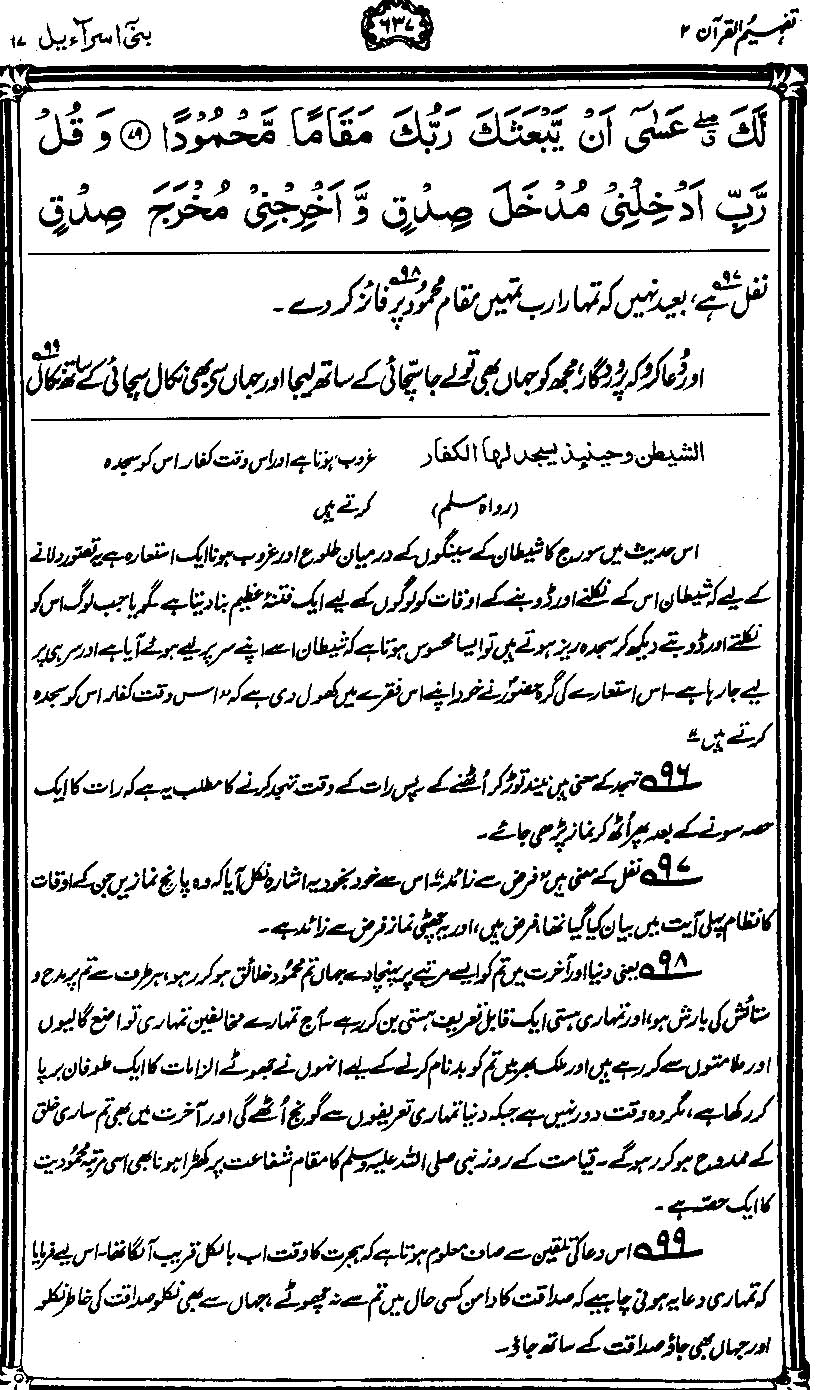 تفہیم القرآن ۲ ۶۳۷ بنی اسرآءیل ۱۷
لَّكَ ۖۗ عَسٰٓى اَنْ يَّبْعَثَكَ رَبُّكَ مَقَامًا مَّحْمُوْدًا ﴿۷۹﴾ وَ قُلْ
رَّبِّ اَدْخِلْنِىْ مُدْخَلَ صِدْقٍ وَّ اَخْرِجْنِىْ مُخْرَجَ صِدْقٍ
نفل ہے۹۷، بعید نہیں کہ تمہارا رب تمہیں مقامِ محمود۹۸ پر فائز کر دے۔
اور دُعا کرو کہ پروردگار، مجھ کو جہاں بھی تو لے جا سچّائی کے ساتھ لیجا اور جہاں سے بھی نکال سچائی کے ساتھ نکال۹۹
الشیطٰن وحینئِذٍ یسجد لھا الکفار غروب ہوتا ہے اور اس وقت کفار اس کو سجدہ
(رواہ مسلم) کرتے ہیں
اس حدیث میں سورج کا شیطان کے سینگوں کے درمیان طلوع اور غروب ہونا ایک استعارہ ہے یہ تصور دلانے
کے لیے کہ شیطان اس کے نکلنے اور ڈوبنے کے اوقات کو لوگوں کے لیے ایک فتنۂ عظیم بنا دیتا ہے گویا جب لوگ اس کو
نکلتے اور ڈوبتے دیکھ کر سجدہ ریز ہوتے ہیں تو ایسا محسوس ہوتا ہے کہ شیطان اسے اپنے سر پر لیے ہوئے آیا ہے اور سر ہی پر
لیے جا رہا ہے۔ اس استعارے کی گرہ حضورؐ نے خود اپنے اس فقرے میں کھول دی ہے کہ "اس وقت کفار اس کو سجدہ
کرتے ہیں"
۹۶ تہجد کے معنی ہیں نیند توڑ کر اُٹھنے کے۔ پس رات کے وقت تہجد کرنے کا مطلب یہ ہے کہ رات کا ایک
حصہ سونے کے بعد پھر اُٹھ کر نماز پڑھی جائے۔
۹۷ نفل کے معنی ہیں "فرض سے زائد"۔ اس سے خود بخود یہ اشارہ نکل آیا کہ وہ پانچ نمازیں جن کے اوقات
کا نظام پہلی آیت میں بیان کیا گیا تھا، فرض ہیں، اور یہ چھٹی نماز فرض سے زائد ہے۔
۹۸ یعنی دنیا اور آخرت میں تم کو ایسے مرتبے پر پہنچا دے جہاں تم محمودِ خلائق ہو کر رہو، ہر طرف سے تم پر مدح و
ستائش کی بارش ہو، اور تمہاری ہستی ایک قابل تعریف ہستی بن کر رہے۔ آج تمہارے مخالفین تمہاری تواضع گالیوں
اور ملامتوں سے کر رہے ہیں اور ملک بھر میں تم کو بدنام کرنے کے لیے انہوں نے جھوٹے الزامات کا ایک طوفان برپا
کر رکھا ہے، مگر وہ وقت دور نہیں ہے جبکہ دنیا تمہاری تعریفوں سے گونج اُٹھے گی اور آخرت میں بھی تم ساری خلق
کے ممدوح ہو کر رہو گے۔ قیامت کے روز نبی صلی اللہ علیہ وسلم کا مقام شفاعت پر کھڑا ہونا بھی اسی مرتبۂ محمودیت
کا ایک حصّہ ہے۔
۹۹ اس دعا کی تلقین سے صاف معلوم ہوتا ہے کہ ہجرت کا وقت اب بالکل قریب آ لگا تھا۔ اس لیے فرمایا
کہ تمہاری دعا یہ ہونی چاہیے کہ صداقت کا دامن کسی حال میں تم سے نہ چھوٹے، جہاں سے بھی نکلو صداقت کی خاطر نکلو
اور جہاں بھی جاؤ صداقت کے ساتھ جاؤ۔